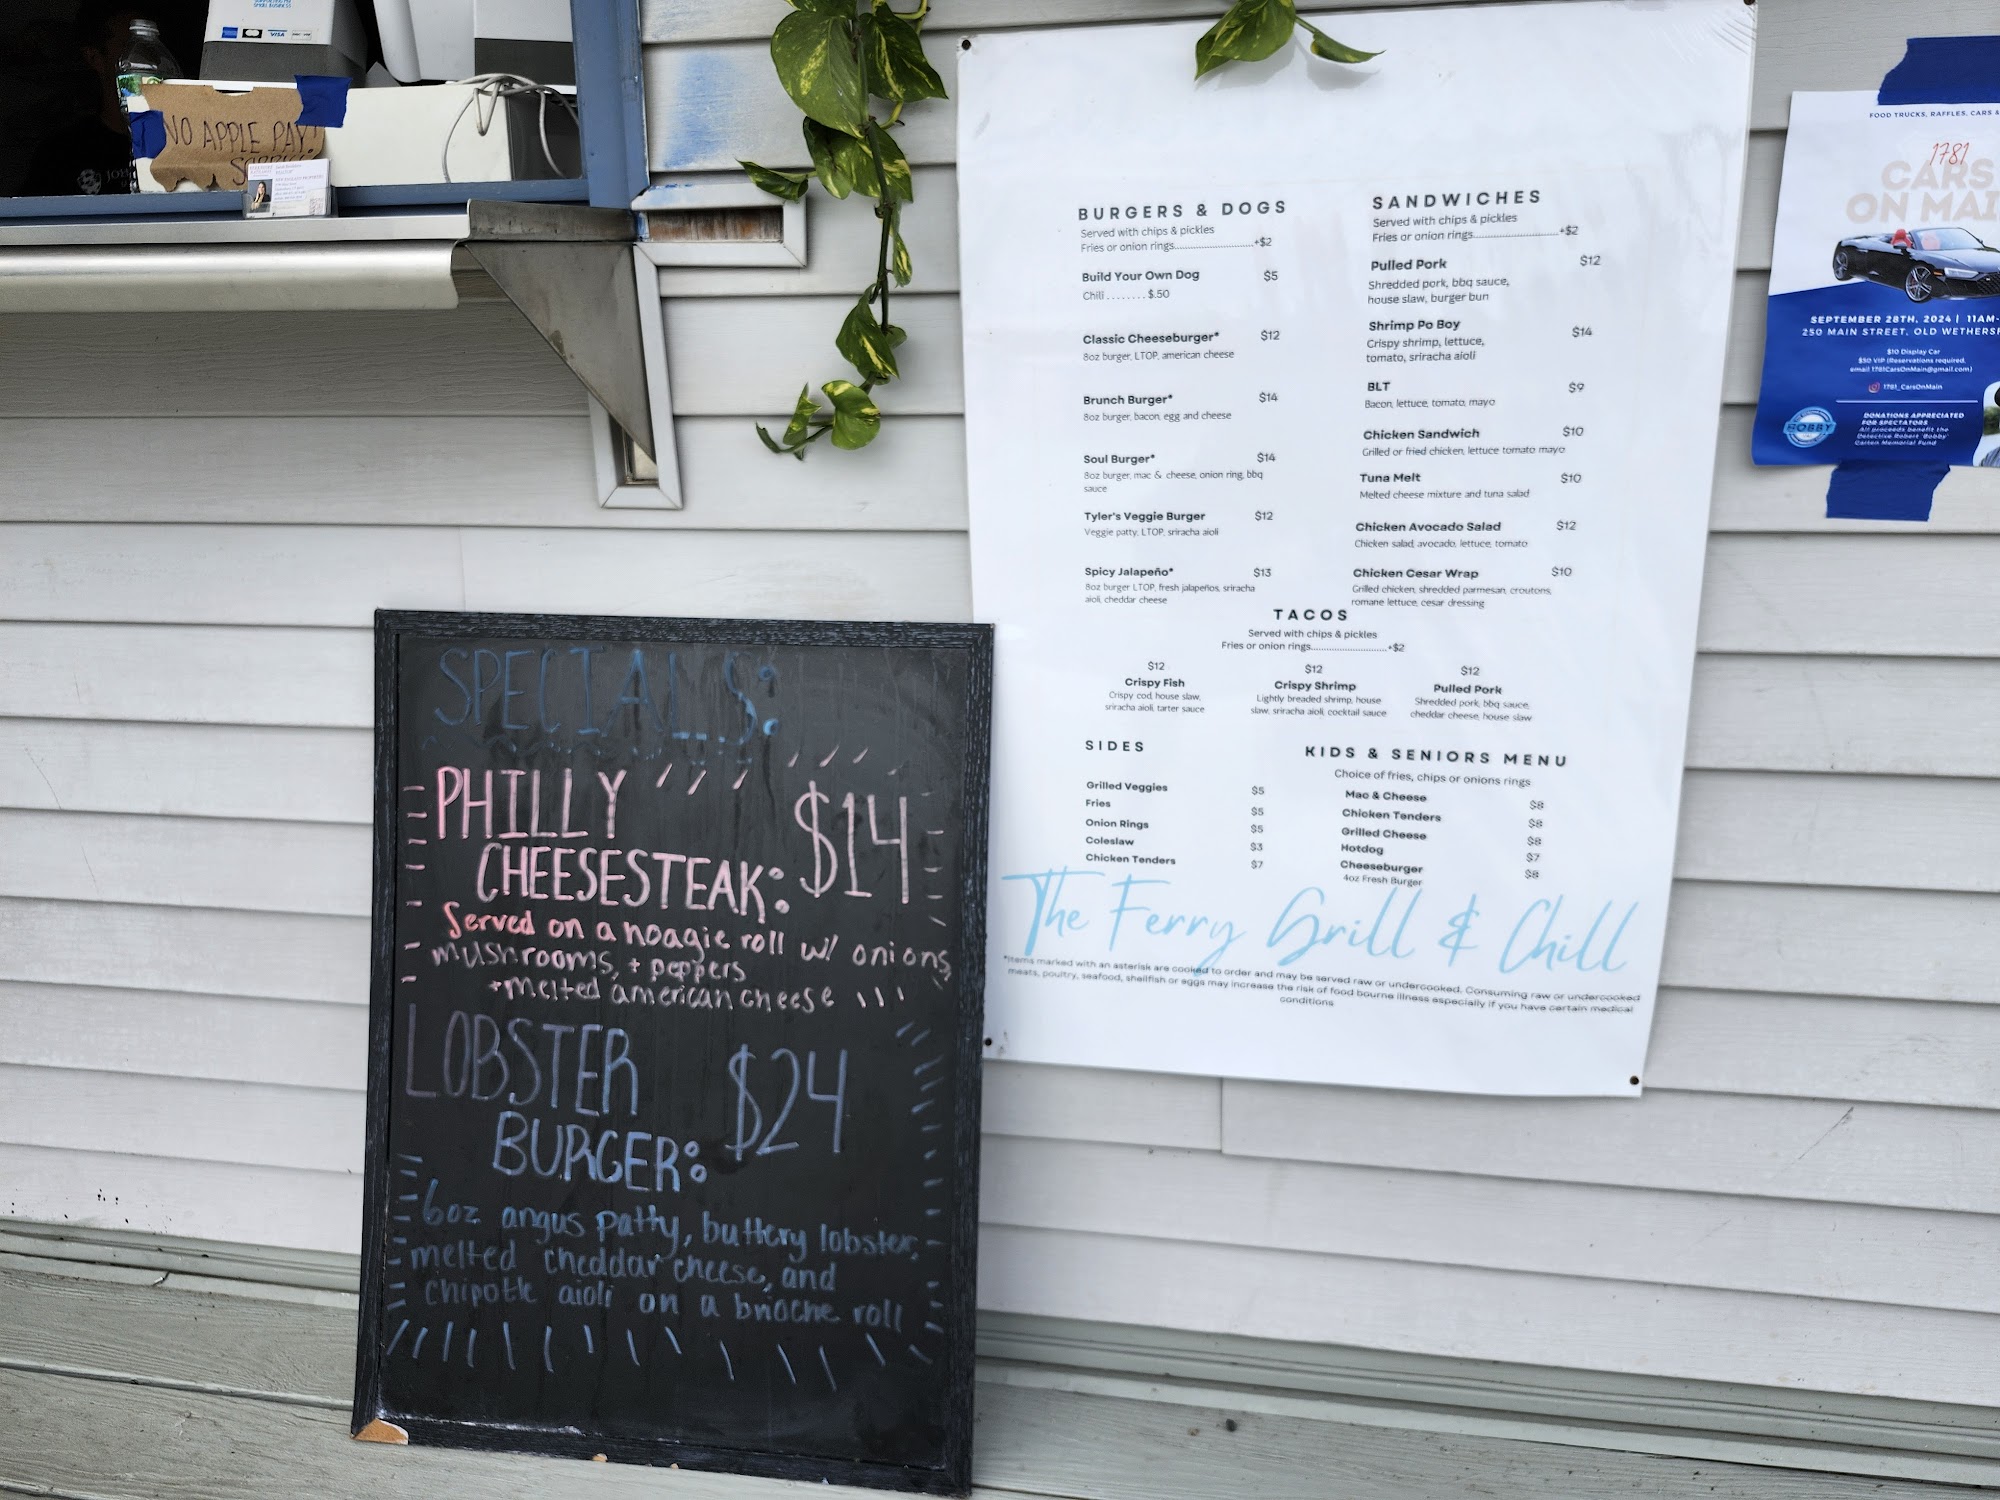 SMALL BUSINESS
VISA
NO APPLE PAY!
SORRY!
SPECIALS:
PHILLY
CHEESESTEAK: $14
Served on a hoagie roll w/ onions,
mushrooms, + peppers
+ melted american cheese
LOBSTER
BURGER: $24
6oz angus patty, buttery lobster,
melted cheddar cheese, and
chipotle aioli on a brioche roll
BURGERS & DOGS
Served with chips & pickles
Fries or onion rings..........................+$2
Build Your Own Dog $5
Chili ........ $.50
Classic Cheeseburger* $12
8oz burger, LTOP, american cheese
Brunch Burger* $14
8oz burger, bacon, egg and cheese
Soul Burger* $14
8oz burger, mac & cheese, onion ring, bbq
sauce
Tyler's Veggie Burger $12
Veggie patty, LTOP, sriracha aioli
Spicy Jalapeño* $13
8oz burger LTOP, fresh jalapeños, sriracha
aioli, cheddar cheese
SANDWICHES
Served with chips & pickles
Fries or onion rings..........................+$2
Pulled Pork $12
Shredded pork, bbq sauce,
house slaw, burger bun
Shrimp Po Boy $14
Crispy shrimp, lettuce,
tomato, sriracha aioli
BLT $9
Bacon, lettuce, tomato, mayo
Chicken Sandwich $10
Grilled or fried chicken, lettuce tomato mayo
Tuna Melt $10
Melted cheese mixture and tuna salad
Chicken Avocado Salad $12
Chicken salad, avocado, lettuce, tomato
Chicken Cesar Wrap $10
Grilled chicken, shredded parmesan, croutons,
romane lettuce, cesar dressing
TACOS
Served with chips & pickles
Fries or onion rings..........................+$2
$12
Crispy Fish
Crispy cod, house slaw,
sriracha aioli, tarter sauce
$12
Crispy Shrimp
Lightly breaded shrimp, house
slaw, sriracha aioli, cocktail sauce
$12
Pulled Pork
Shredded pork, bbq sauce,
cheddar cheese, house slaw
SIDES
Grilled Veggies $5
Fries $5
Onion Rings $5
Coleslaw $3
Chicken Tenders $7
KIDS & SENIORS MENU
Choice of fries, chips or onions rings
Mac & Cheese $8
Chicken Tenders $8
Grilled Cheese $8
Hotdog $7
Cheeseburger $8
4oz Fresh Burger
The Ferry Grill & Chill
*Items marked with an asterisk are cooked to order and may be served raw or undercooked. Consuming raw or undercooked
meats, poultry, seafood, shellfish or eggs may increase the risk of food bourne illness especially if you have certain medical
conditions
FOOD TRUCKS, RAFFLES, CARS &
1781
CARS
ON MAI
SEPTEMBER 28TH, 2024 | 11AM-
250 MAIN STREET, OLD WETHERSF
$10 Display Car
$50 VIP (Reservations required,
email 1781CarsOnMain@gmail.com)
1781_CarsOnMain
BOBBY
DONATIONS APPRECIATED
FOR SPECTATORS
All proceeds benefit the
Detective Robert 'Bobby'
Garten Memorial Fund